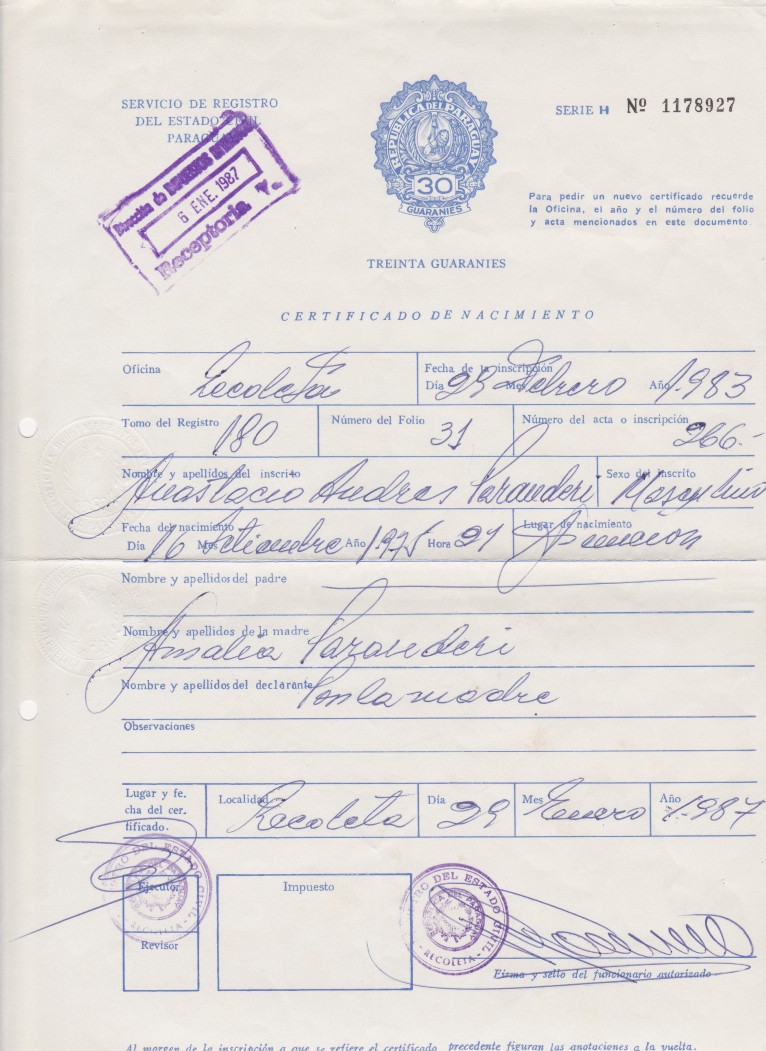 SERVICIO DE REGISTRO
DEL ESTADO CIVIL
PARAGUAY
Dirección de IMPUESTOS INTERNOS
6 ENE. 1987
Receptoria
REPUBLICA DEL PARAGUAY
30
GUARANIES
SERIE H Nº 1178927
Para pedir un nuevo certificado recuerde
la Oficina, el año y el número del folio
y acta mencionados en este documento.
TREINTA GUARANIES
CERTIFICADO DE NACIMIENTO
Oficina Recoleta
Fecha de la inscripción
Día 24 Mes Febrero Año 1.983
Tomo del Registro 180
Número del Folio 31
Número del acta o inscripción 266.-
Nombre y apellidos del inscrito Anastacio Andres Saranderi
Sexo del inscrito Masculino
Fecha del nacimiento
Día 16 Mes Setiembre Año 1.975 Hora 21
Lugar de nacimiento Asunción
Nombre y apellidos del padre
Nombre y apellidos de la madre Amalia Saranderi
Nombre y apellidos del declarante Por la madre
Observaciones
Lugar y fe-
cha del cer-
tificado.
Localidad Recoleta
Día 29
Mes Enero
Año 1.987
Ejecutor
Revisor
Impuesto
REGISTRO DEL ESTADO CIVIL
- RECOLETA -
REGISTRO DEL ESTADO CIVIL
REPUBLICA DEL PARAGUAY
- RECOLETA -
Firma y sello del funcionario autorizado
Al margen de la inscripción a que se refiere el certificado precedente figuran las anotaciones a la vuelta.